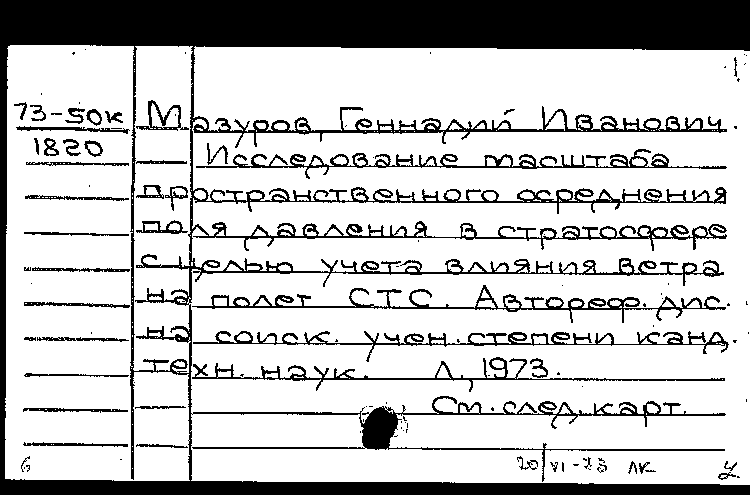 73-50к Мазуров, Геннадий Иванович.
1820 Исследование масштаба
пространственного осреднения
поля давления в стратосфере
с целью учета влияния ветра
на полет СТС. Автореф. дис.
на соиск. учен. степени канд.
техн. наук. Л., 1973.
См. след. карт.
6 20/VI-73 ЛК